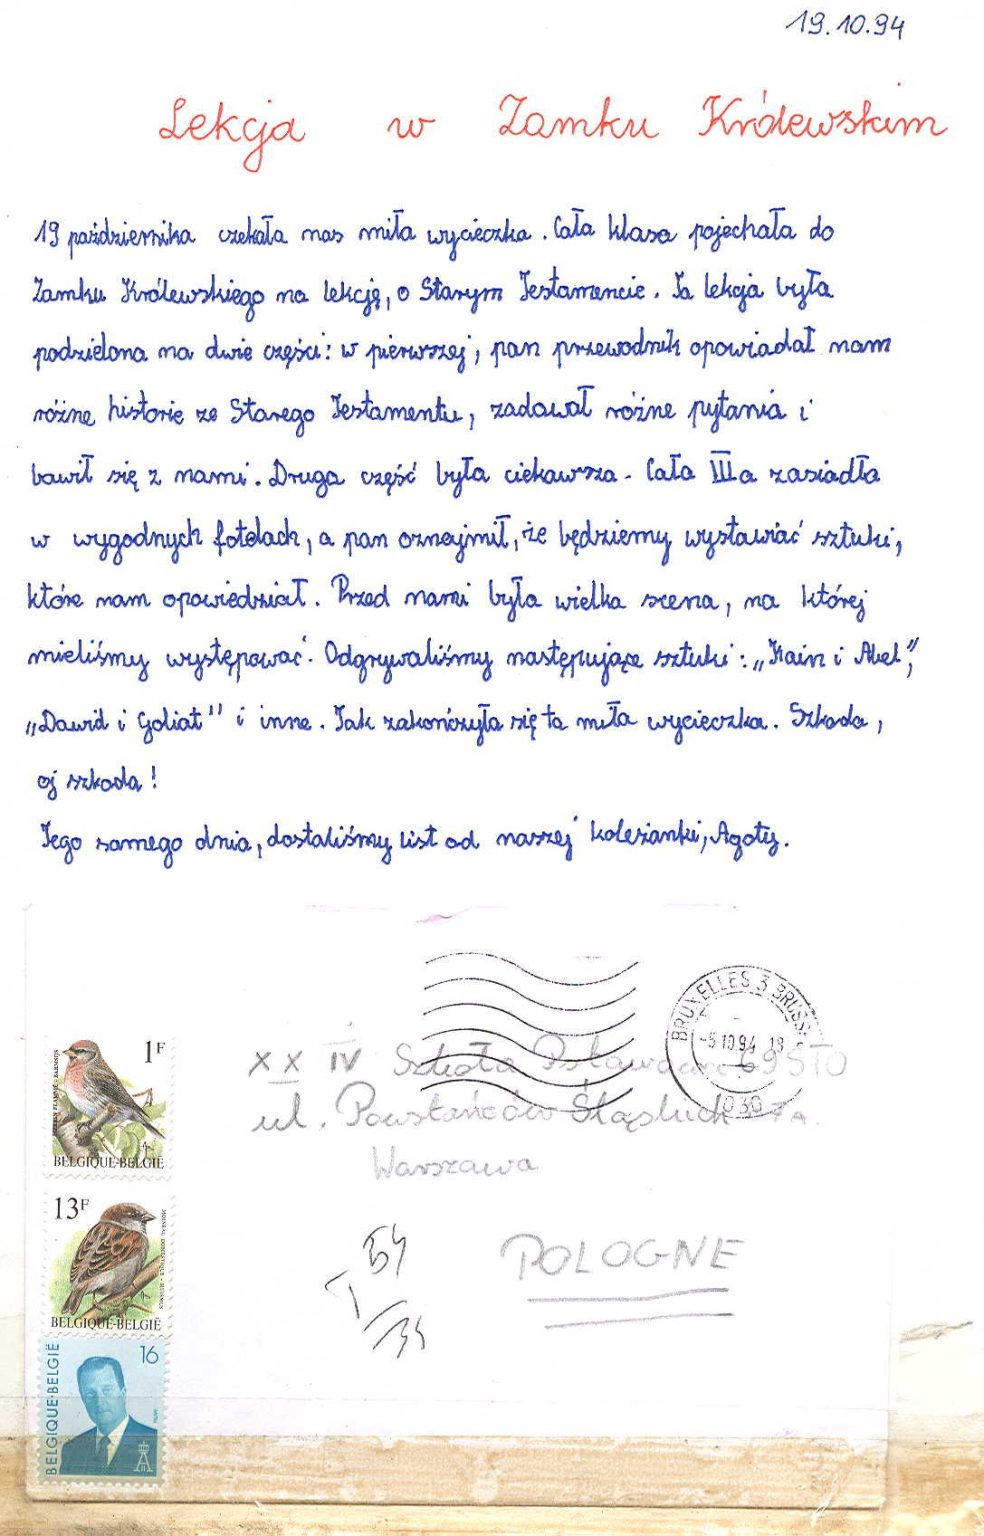 19.10.94
Lekcja w Zamku Królewskim
19 października czekała nas miła wycieczka. Cała klasa pojechała do
Zamku Królewskiego na lekcję, o Starym Testamencie. Ta lekcja była
podzielona na dwie części: w pierwszej, pan przewodnik opowiadał nam
różne historie ze Starego Testamentu, zadawał różne pytania i
bawił się z nami. Druga część była ciekawsza. Cała IIIa zasiadła
w wygodnych fotelach, a pan oznajmił, że będziemy wystawiać sztuki,
które nam opowiedział. Przed nami była wielka scena, na której
mieliśmy występować. Odgrywaliśmy następujące sztuki: „Kain i Abel”,
„Dawid i Goliat” i inne. Tak zakończyła się ta miła wycieczka. Szkoda,
oj szkoda!
Tego samego dnia, dostaliśmy list od naszej koleżanki, Agaty.
BRUXELLES 3 BRUSS
-5 10 94 18
1030
1F
BELGIQUE-BELGIË
XX IV Szkoła Podstawowa 69 STO
ul. Powstańców Śląskich 67A
Warszawa
13F
BELGIQUE-BELGIË
POLOGNE
16
BELGIQUE-BELGIË